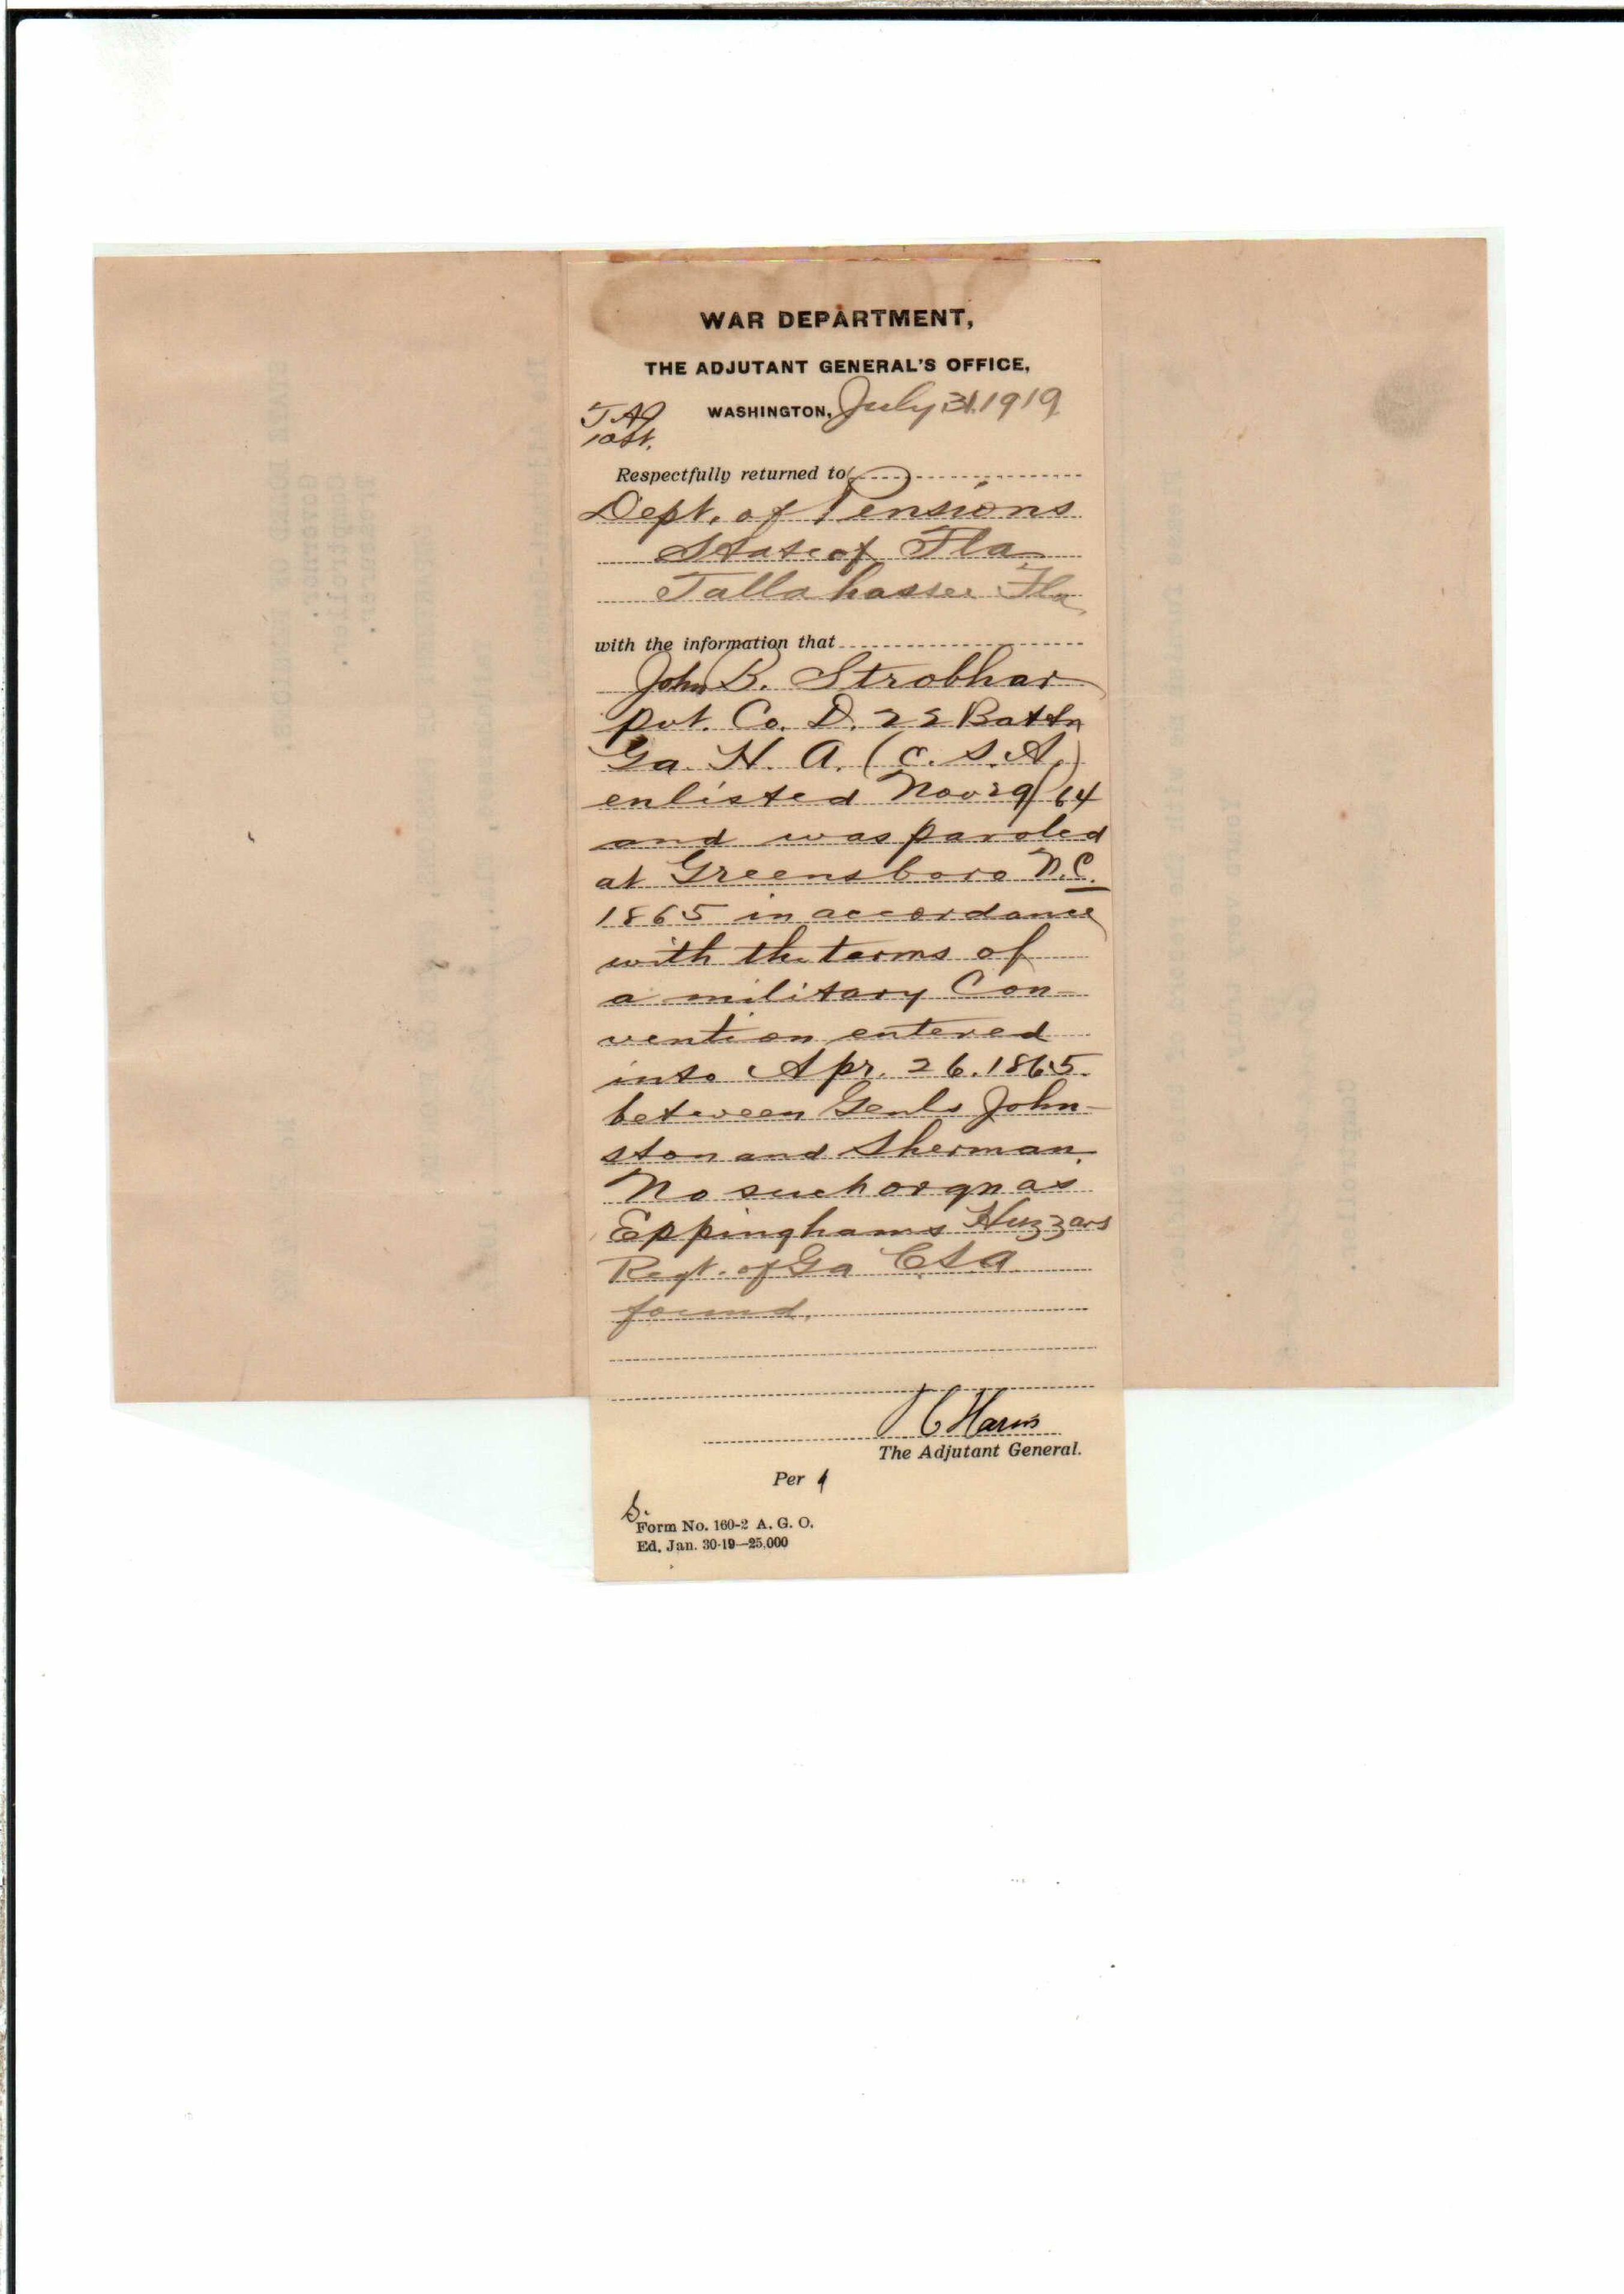 WAR DEPARTMENT,
THE ADJUTANT GENERAL'S OFFICE,
WASHINGTON, July 31. 1919
Respectfully returned to
Dept. of Pensions
State of Fla
Tallahassee Fla
with the information that
John B. Strobhar
pvt. Co. D. 22 Battn
Ga. H. A. (C. S. A.)
enlisted Nov 29/64
and was paroled
at Greensboro N.C.
1865 in accordance
with the terms of
a military Con-
vention entered
into Apr. 26. 1865.
between Genls John-
ston and Sherman.
No such orgn as
Eppinghams Huzzars
Regt. of Ga CSA
found.
Harris
The Adjutant General.
Per
S.
Form No. 160-2 A. G. O.
Ed. Jan. 30-19—25,000